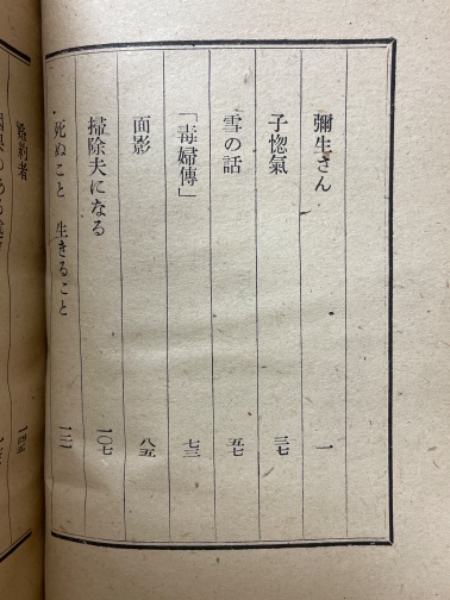 彌生さん 一
子惚氣 三七
雪の話 五七
「毒婦傳」 七三
面影 八五
掃除夫になる 一〇七
死ぬこと 生きること 一二一
婚約者